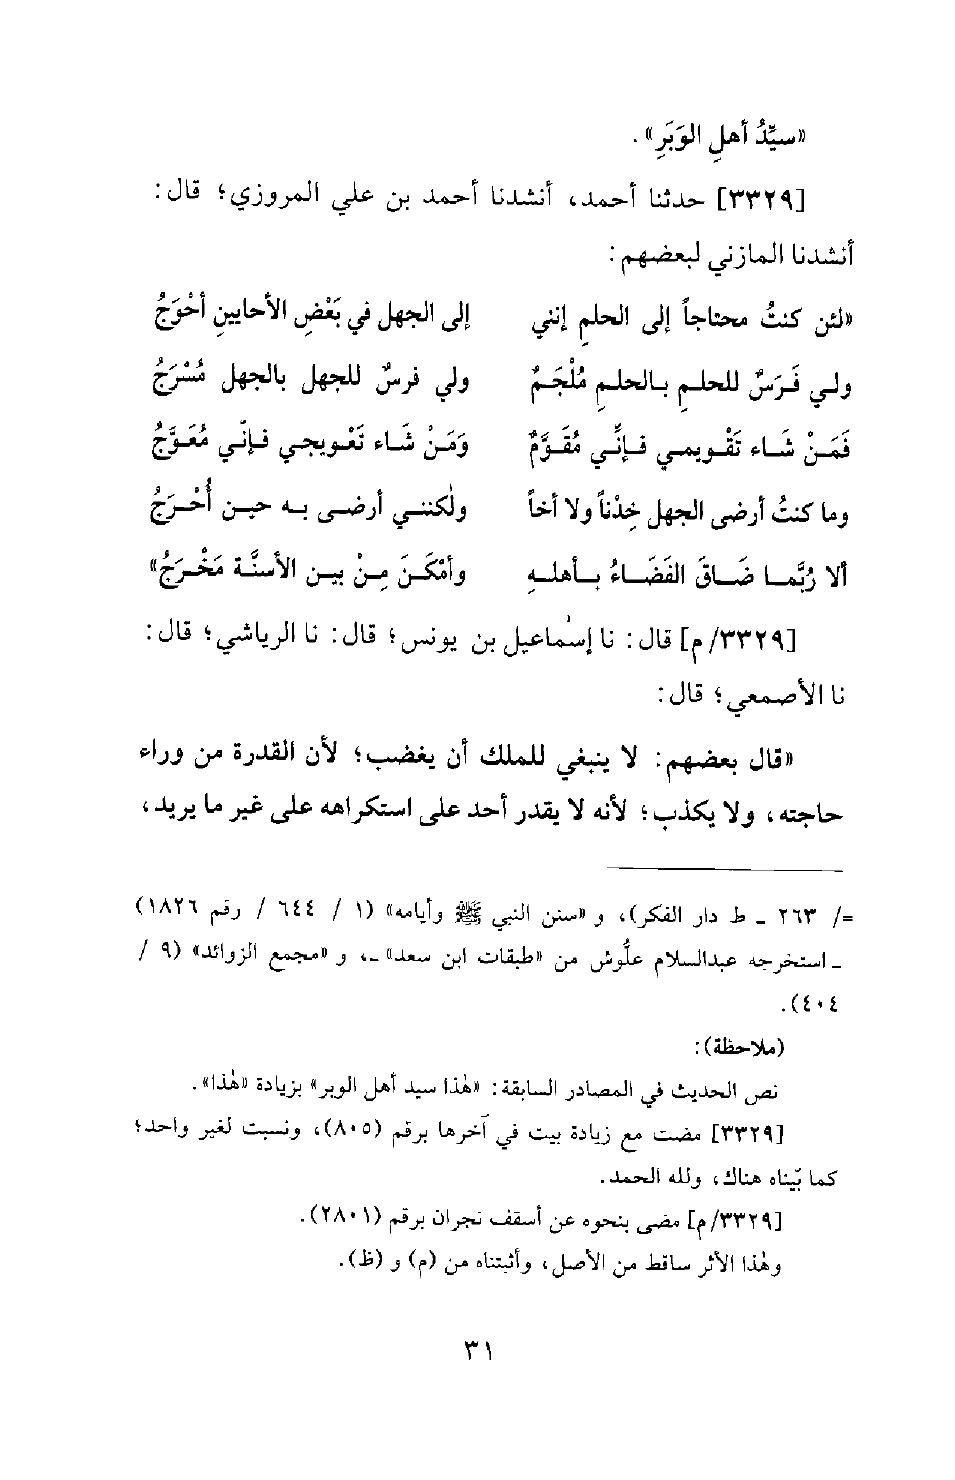 «سيِّدُ أهلِ الوَبَرِ».
[٣٣٢٩] حدثنا أحمد، أنشدنا أحمد بن علي المروزي؛ قال:
أنشدنا المازني لبعضهم:
«لئن كنتُ محتاجاً إلى الحلمِ إنني إلى الجهل في بَعْضِ الأحايينِ أحْوَجُ
ولي فَرَسٌ للحلمِ بالحلمِ مُلْجَمٌ ولي فرسٌ للجهل بالجهل مُسْرَجُ
فَمَنْ شَاء تَقْويمي فإنَّي مُقَوَّمٌ وَمَنْ شَاء تَعْويجي فإنّي مُعَوَّجُ
وما كنتُ أرضى الجهل خِدْناً ولا أخاً ولٰكنني أرضى به حين أُحْرَجُ
ألا رُبَّما ضَاقَ الفَضَاءُ بأهلهِ وأمْكَنَ مِنْ بين الأسنَّة مَخْرَجُ»
[٣٣٢٩/ م] قال: نا إسْماعيل بن يونس؛ قال: نا الرياشي؛ قال:
نا الأصمعي؛ قال:
«قال بعضهم: لا ينبغي للملك أن يغضب؛ لأن القدرة من وراء
حاجته، ولا يكذب؛ لأنه لا يقدر أحد على استكراهه على غير ما يريد،
=/ ٢٦٣ ـ ط دار الفكر)، و «سنن النبي ﷺ وأيامه» (١ / ٦٤٤ / رقم ١٨٢٦)
ـ استخرجه عبدالسلام علُّوش من «طبقات ابن سعد» ـ، و «مجمع الزوائد» (٩ /
٤٠٤).
(ملاحظة):
نص الحديث في المصادر السابقة: «هٰذا سيد أهل الوبر» بزيادة «هٰذا».
[٣٣٢٩] مضت مع زيادة بيت في آخرها برقم (٨٠٥)، ونسبت لغير واحد؛
كما بيّناه هناك، ولله الحمد.
[٣٣٢٩/ م] مضى بنحوه عن أسقف نجران برقم (٢٨٠١).
وهٰذا الأثر ساقط من الأصل، وأثبتناه من (م) و (ظ).
٣١